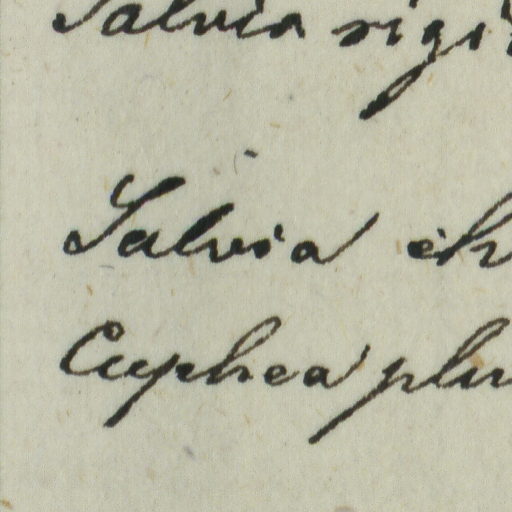 Salvia rigi
Salvia
Cuphea plu